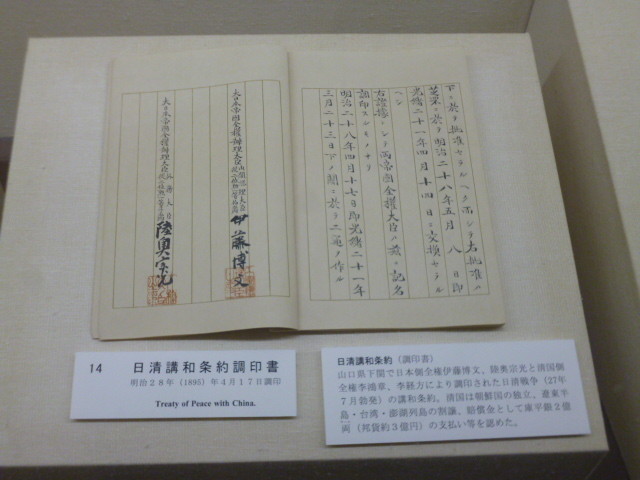 下ニ於テ批准セラルヘク而シテ右批准ハ
芝罘ニ於テ明治二十八年五月八日即
光緒二十一年四月十四日ニ交換セラル
ヘシ
右證據トシテ両帝國全權大臣ハ茲ニ記名
調印スルモノナリ
明治二十八年四月十七日即光緒二十一年
三月二十三日下ノ關ニ於テ二通ヲ作ル
大日本帝國全權辨理大臣
伊藤博文
大日本帝國全權辨理大臣
陸奥宗光
14 日清講和条約調印書
明治28年（1895）年4月17日調印
Treaty of Peace with China.
日清講和条約（調印書）
山口県下関で日本側全権伊藤博文、陸奥宗光と清国側
全権李鴻章、李経方により調印された日清戦争（27年
7月勃発）の講和条約。清国は朝鮮国の独立、遼東半
島・台湾・澎湖列島の割譲、賠償金として庫平銀2億
両（邦貨約3億円）の支払い等を認めた。